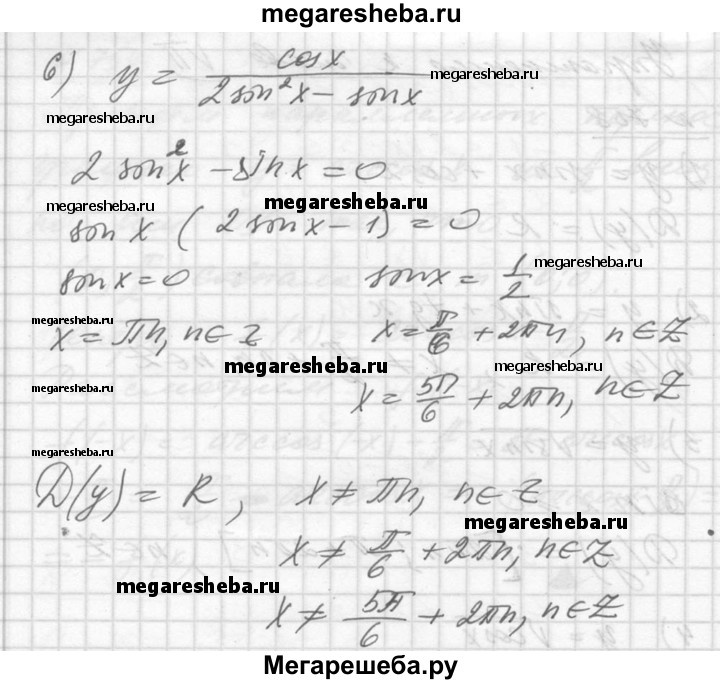 megaresheba.ru
6) y = cosx / (2 sin²x − sinx)
megaresheba.ru
megaresheba.ru
2 sin²x − sinx = 0
megaresheba.ru
megaresheba.ru
sinx ( 2 sinx − 1) = 0
megaresheba.ru
sinx = 0 sinx = 1/2
megaresheba.ru
megaresheba.ru
x = πn, n∈Z x = π/6 + 2πn, n∈Z
megaresheba.ru
megaresheba.ru
x = 5π/6 + 2πn, n∈Z
megaresheba.ru
megaresheba.ru
D(y) = R, x ≠ πn, n∈Z
megaresheba.ru
x ≠ π/6 + 2πn, n∈Z
megaresheba.ru
x ≠ 5π/6 + 2πn, n∈Z
Мегарешеба.ру